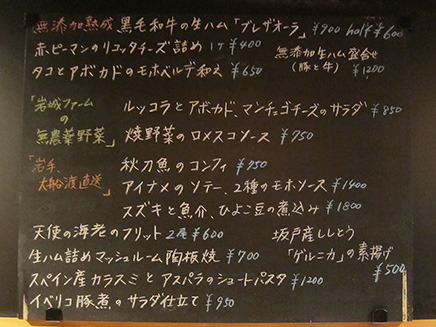 無添加熟成 黒毛和牛の生ハム「ブレザオーラ」 ¥900 half ¥600
赤ピーマンのリコッタチーズ詰め 1ケ ¥400
無添加生ハム盛合せ
(豚と牛) ¥1200
タコとアボカドのモホベルデ和え ¥650
「岩城ファーム
の
無農薬野菜」
ルッコラとアボカド、マンチェゴチーズのサラダ ¥850
焼野菜のロメスコソース ¥750
「岩手、
大船渡直送」
秋刀魚のコンフィ ¥750
アイナメのソテー、2種のモホソース ¥1400
スズキと魚介、ひよこ豆の煮込み ¥1800
天使の海老のフリット 2尾 ¥600
坂戸産ししとう
「ゲルニカ」の素揚げ
¥500
生ハム詰めマッシュルーム陶板焼 ¥700
スペイン産カラスミとアスパラのショートパスタ ¥1200
イベリコ豚煮のサラダ仕立て ¥950